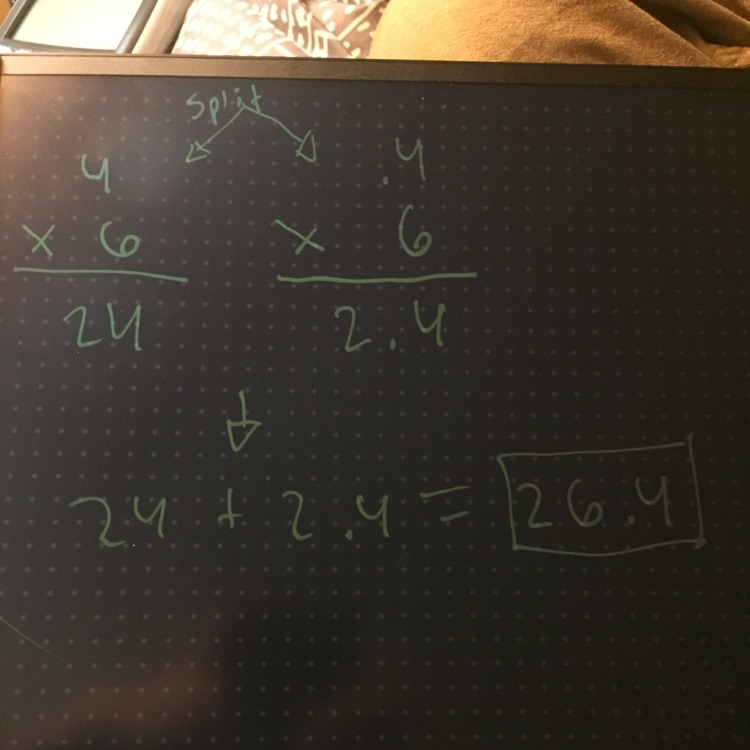 split
4 .4
x 6 x 6
24 2.4
24 + 2.4 = 26.4